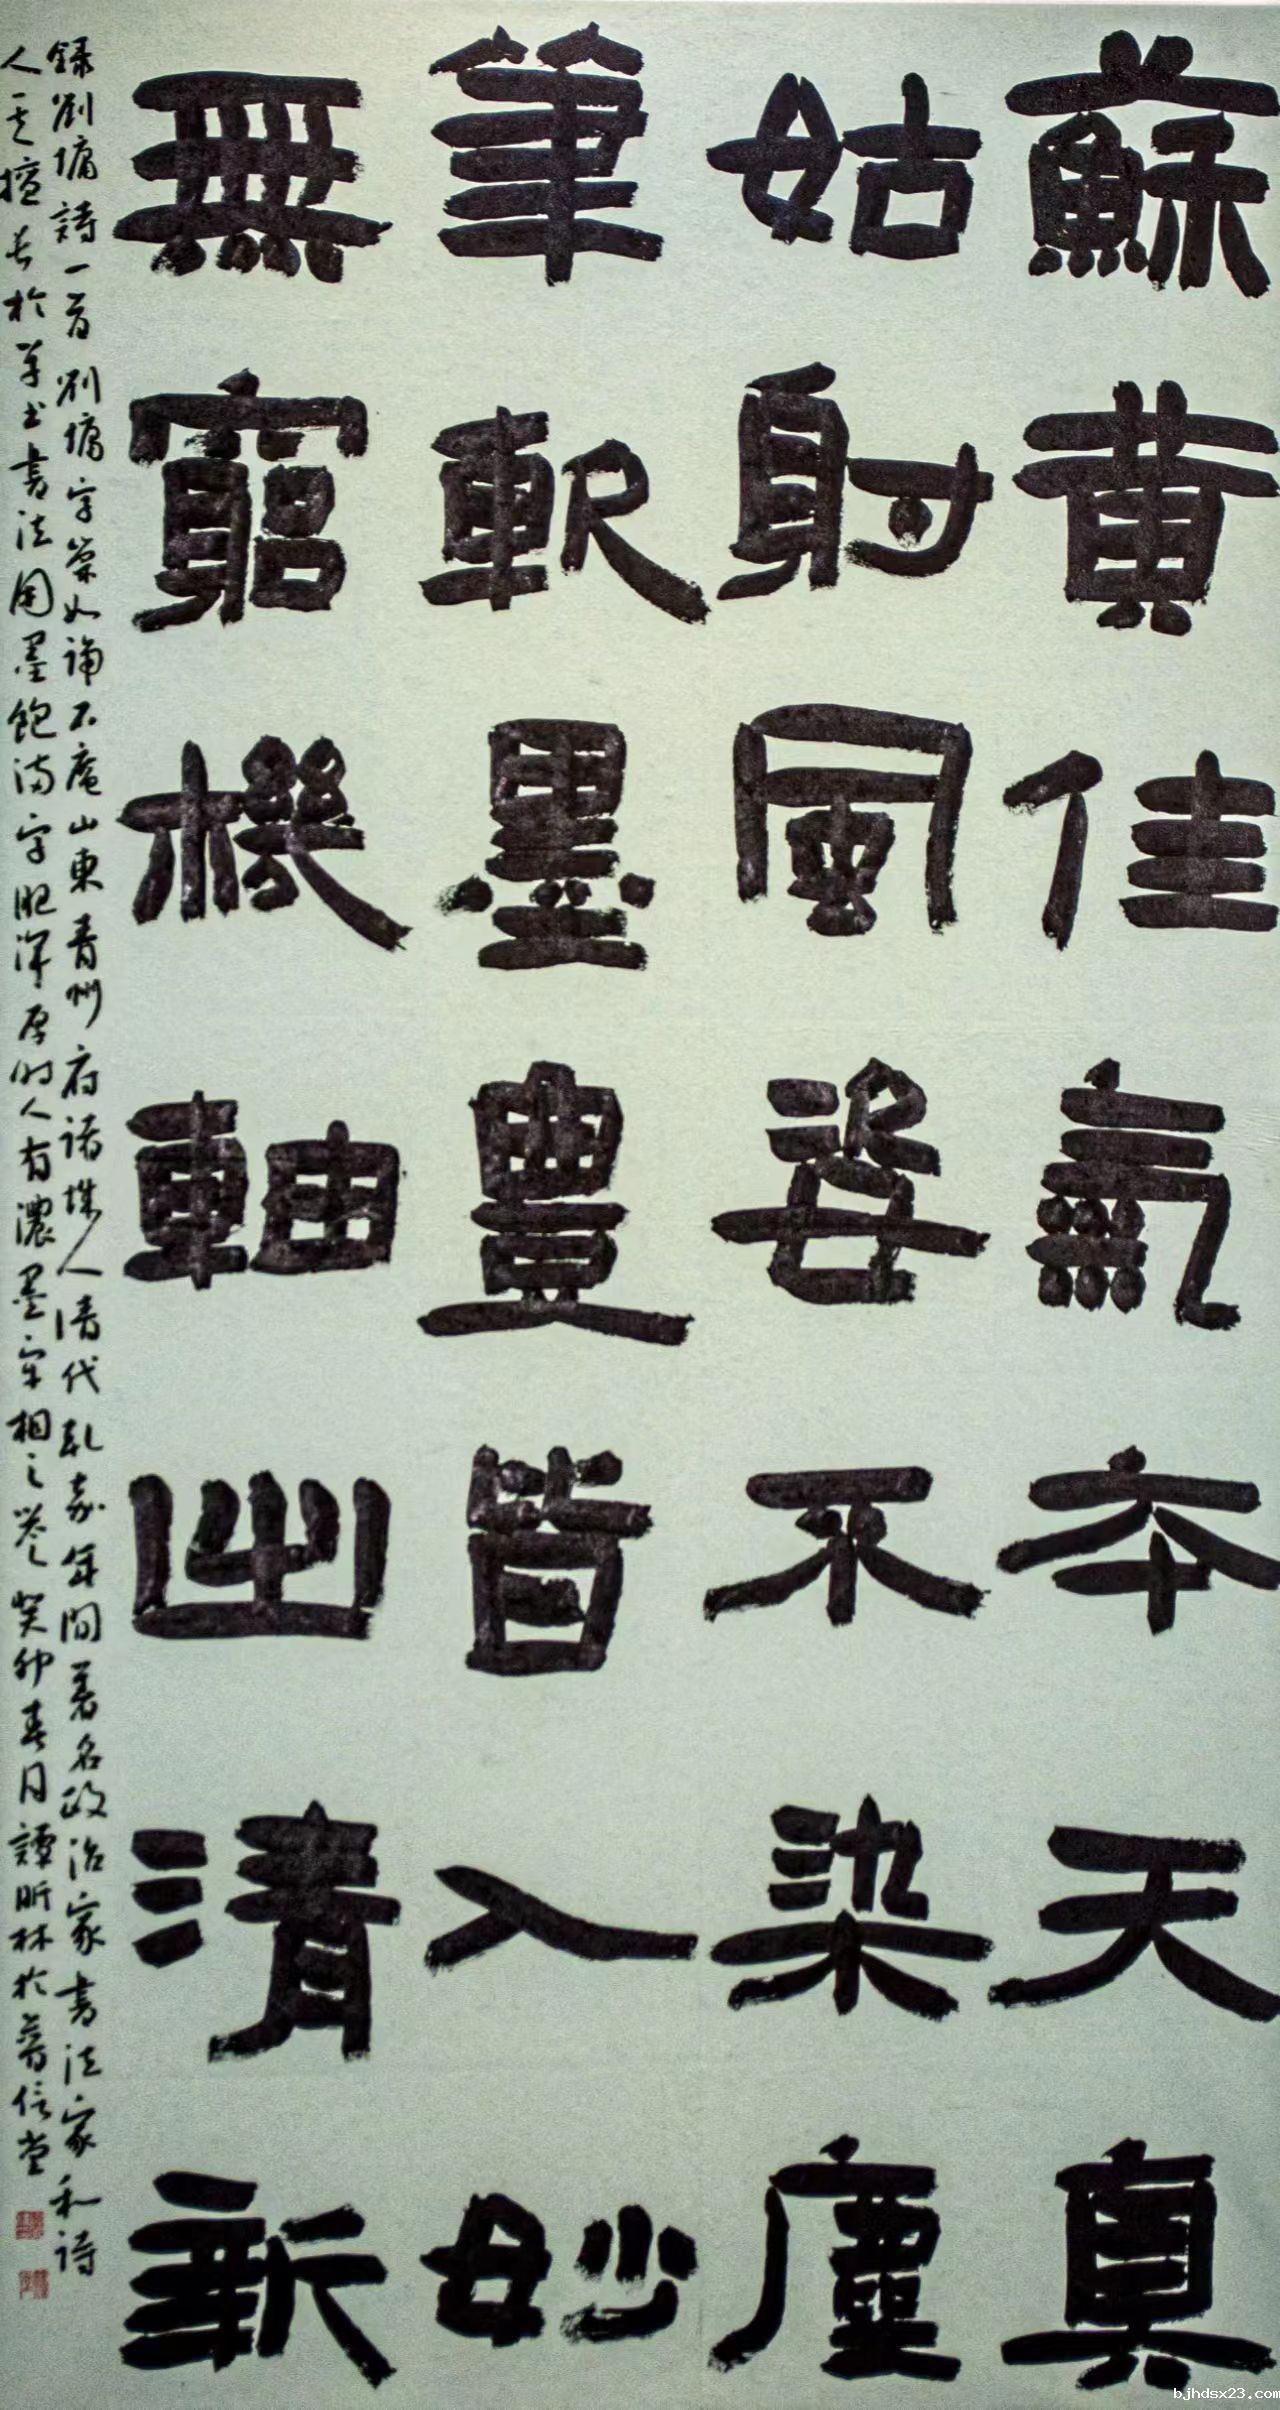 蘇黄佳氣本天真
姑射風姿不染塵
筆軟墨豐皆入妙
無窮機軸出清新
録劉墉詩一首劉墉字崇如號石庵山東青州府諸城人清代乾嘉年間著名政治家書法家和詩
人其擅長於草書書法用墨飽滿字肥渾厚時人有濃墨宰相之譽癸卯春月譚昕林於善信堂
bjhdsx23.com